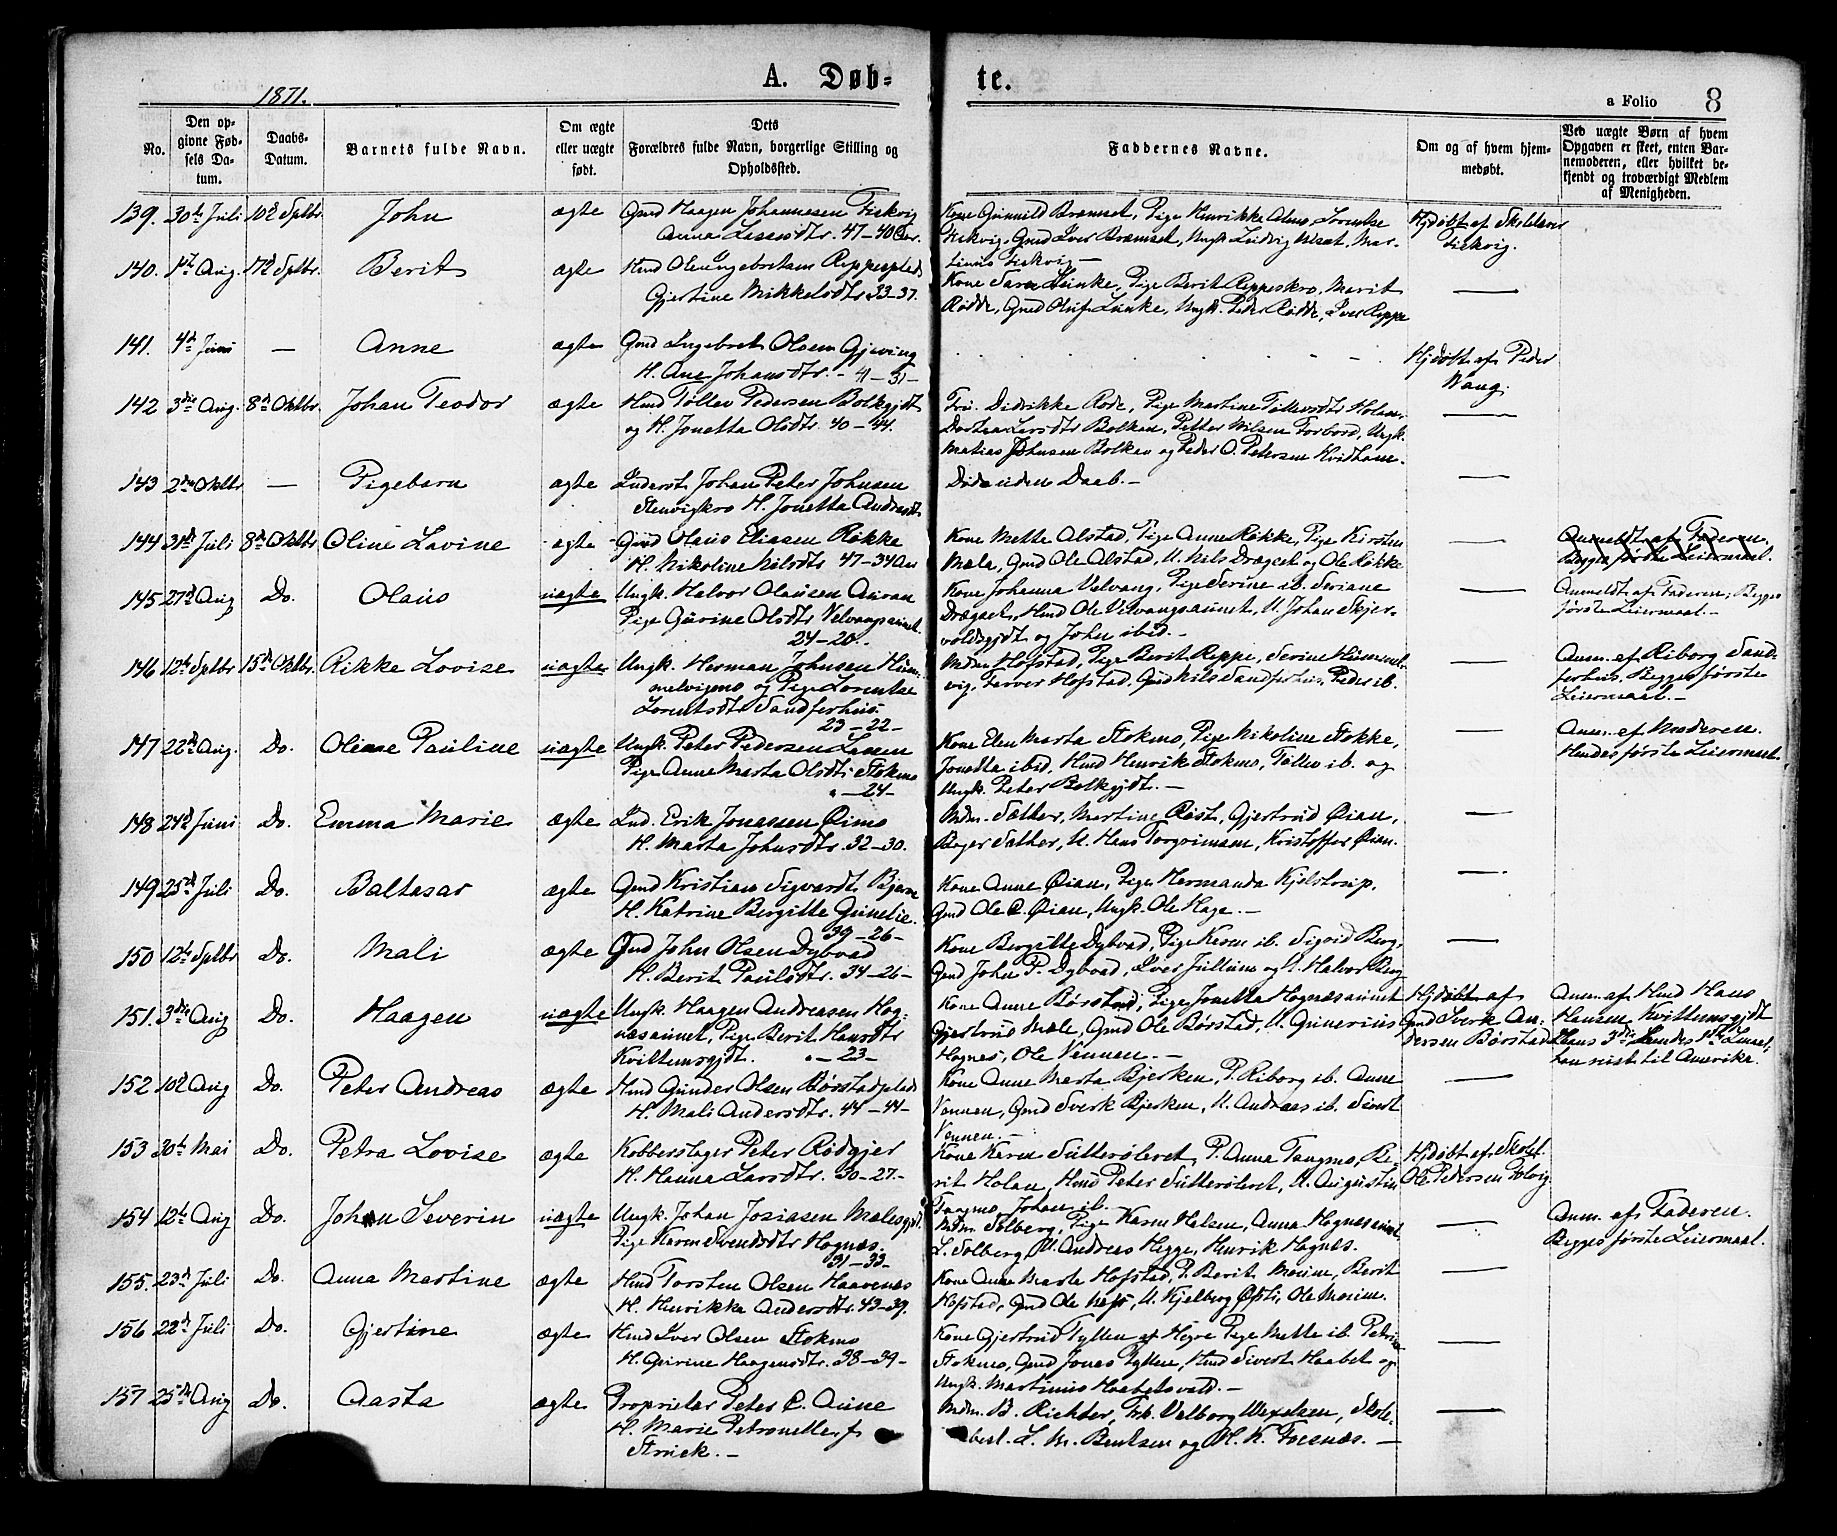 1871.
A. Døb-
te.
a Folio 8
No.
Den op-
givne Fød-
sels Da-
tum.
Daabs-
Datum.
Barnets fulde Navn.
Om ægte
eller uægte
født.
Dets
Forældres fulde Navn, borgerlige Stilling og
Opholdssted.
Faddernes Navne.
Om og af hvem hjem-
medøbt.
Ved uægte Børn af hvem
Opgaven er skeet, enten Bar-
nemoderen, eller hvilket be-
kjendt og troværdigt Medlem
af Menigheden.
139. 30te Juli 10de Sptbr John ægte Gmd Haagen Johannesen Fiskvig
Anna Larsdtr. 47-40 Aar.
Kone Gunnild Bremset, Pige Henrikke Alms, Lorentse
Fiskvig, Gmd Iver Bremset, Ungk. Ludvig Mar-
tinus Fiskvig —
Hjdøbt af
Fiskvig.
140. 1ste Aug. 17de Sptbr. Berit ægte Hmd Ole Ingebretsen Reppesplads
Gjertine Mikkelsdtr. 33-37.
Kone Sara Leinke, Pige Berit Reppeskro, Marit
Rødde, Gmd Oluf Leinke, Ungk. Peder Rødde, Iver Reppe
—
141. 4de Juni — Anne ægte Gmd Ingebret Olsen Gjeving
H. Ane Johansdtr. - 41-31-
Hjdøbt af Peder
Vang.
142 3die Aug. 8de Oktbr. Johan Teodor ægte Hmd Tøllev Pedersen Bolkgjdt
og H. Jonetta Olsdtr. 40-44.
Fru Didrikke Rode, Pige Martine Tøllevsdtr Holan,
Dortea Larsdtr Bolkan, Petter Nilsen Forbord, Ungk.
Matias Johnsen Bolkan og Peder O. Petersen Hvidham.
—
143 2den Oktbr — Pigebarn ægte Inderst Johan Peter Johnsen
Stenvigkro H. Jonetta Andersdtr
Død uden Daab. —
—
144 31te Juli 8de Oktbr. Oline Lovine ægte Gmd Olaus Eliasen Røkke
H. Nikoline Nilsdtr 47-34 Aar
Kone Mette Alstad, Pige Anne Røkke, Pige Kirsten
Mæle, Gmd Ole Alstad, U. Nils Drægset og Ole Røkke
—
Anmeldt af Faderen.
Begges første Leiermaal.
145 27de Aug Do. Olaus uægte Ungk. Halvor Olausen Auran
Pige Gurine Olsdtr Velvangsaunet.
24-20.
Kone Johanna Velvang, Pige Serine ib. Seriane
Drægset, Hmd Ole Velvangsaunet, U. Johan Skjer-
voldsgjdt og John ibid. —
Anmeldt af Faderen, Begges
første Leiermaal. —
146 12te Sptbr 15de Oktbr. Rikke Lovise uægte Ungk. Herman Johnsen Hum-
melvigmo og Pige Lorentse
Lorentsdtr Sandferhus.
23-22-
Mdm Hofstad, Pige Berit Reppe, Serine Hummel-
vig, Farver Hofstad, Gmd Nils Sandferhus, Peder ib.
—
Anm. af Riborg Sand-
ferhus. Begges første
Leiermaal. —
147 22de Aug. Do. Oline Pauline uægte Ungk. Peter Pedersen Lanen
Pige Anne Marta Olsdtr Stokmo
"-24-
Kone Elen Marta Stokmo, Pige Nikoline Stokke,
Jonetta ibid. Hmd Henrik Stokmo, Tøllev ib. og
Ungk. Peter Bolkgjdt. —
—
Anm. af Moderen.
Hendes første Leiermaal.
148 24de Juni Do. Emma Marie ægte Ind. Erik Jonassen Øimo
H. Marta Johnsdtr. 32-30.
Mdm. Sæther, Martine Røst, Gjertrud Øian,
Beger Sæther, U. Hans Torgrimsen, Kristoffer Øian.
—
149 25de Juli Do. Baltasar ægte Gmd Kristian Sigvardt Bjerve
H. Katrine Bergitte Gunelie.
39-26-
Kone Anne Øian, Pige Hermanda Kjelstrup,
Gmd Ole C. Øian, Ungk. Ole Hage. —
—
150 12te Sptbr Do. Mali ægte Gmd John Olsen Dybvad
H. Berit Paulsdtr. 34-26-
Kone Bergitte Dybvad, Pige Karen ib. Sigrid Berg,
Gmd John P. Dybvad, Iver Jullum og U. Halvor Berg
—
151. 3die Aug Do. Haagen uægte Ungk. Haagen Andreasen Hog-
næsaunet, Pige Berit Hansdtr
Kvittemsgjdt. "-23-
Kone Anne Børstad, Pige Jonetta Hognæsaunet
Gjertrud Mæle, Gmd Ole Børstad, U. Gunerius
Hognæs, Ole Vennen. —
Hjdøbt af
Gmd Sverk An-
dersen Børstad
Anm. af Hmd Hans
Hansen Kvittemsgjdt
Hans 3die, hendes 1ste Leierml.,
han reist til Amerika.
152 10de Aug Do. Peter Andreas ægte Hmd Gunder Olsen Børstadplads
H. Mali Andersdtr. 44-44-
Kone Anne Marta Bjerken, P. Riborg ib. Anne
Vennen, Gmd Sverk Bjerken, U. Andreas ib. Sivert
Vennen. —
—
153 30te Mai Do. Petra Lovise ægte Kobberslager Peter Rødgjer
H. Hanna Larsdtr. 30-27-
Kone Karen Sutterøleret, P. Anna Tangmo, Be-
rit Holan, Hmd Peter Sutterøleret, U. Augustin
Tangmo, Johan ib.
Hjdøbt af Skoll.
Ole Pedersen
154 12te Aug Do. Johan Severin uægte Ungk. Johan Josiasen Mælesgjdt.
Pige Karen Svendsdtr Hognæs.
31-33-
Mdm. Solberg, Pige Karen Halsen, Anna Hognæsaunet
L. Solberg, U. Andreas Hegge, Henrik Hognæs.
—
Anm. af Faderen.
Begges første Leiermaal.
155. 23de Juli Do. Anna Martine ægte Hmd Torsten Olsen Haavenæs
H. Henrikke Andersdtr. 43-39.
Kone Anne Marta Hofstad, P. Berit Moxine, Berit
Hofstad, Gmd Ole Næss, U. Kjelberg Øfsti, Ole
—
156 22de Juli Do. Gjertine ægte Hmd Iver Olsen Stokmo
H. Gurine Haagensdtr. 38-39-
Kone Gjertrud Fylten af Hegre Pige Mette ib. Petrine
Stokmo, Gmd Jonas Fylten, Hmd Sivert Haabet og
Ungk. Martinus Haabetsvald. —
—
157 25de Aug Do. Aasta ægte Proprietær Peter C. Aune
H. Marie Petronelle f.
Struck. —
Mdm. B. Richter, Frk. Valborg Wexelsen, Skole-
best. L. M. Bentsen og H. K. Foosnæs. —
—